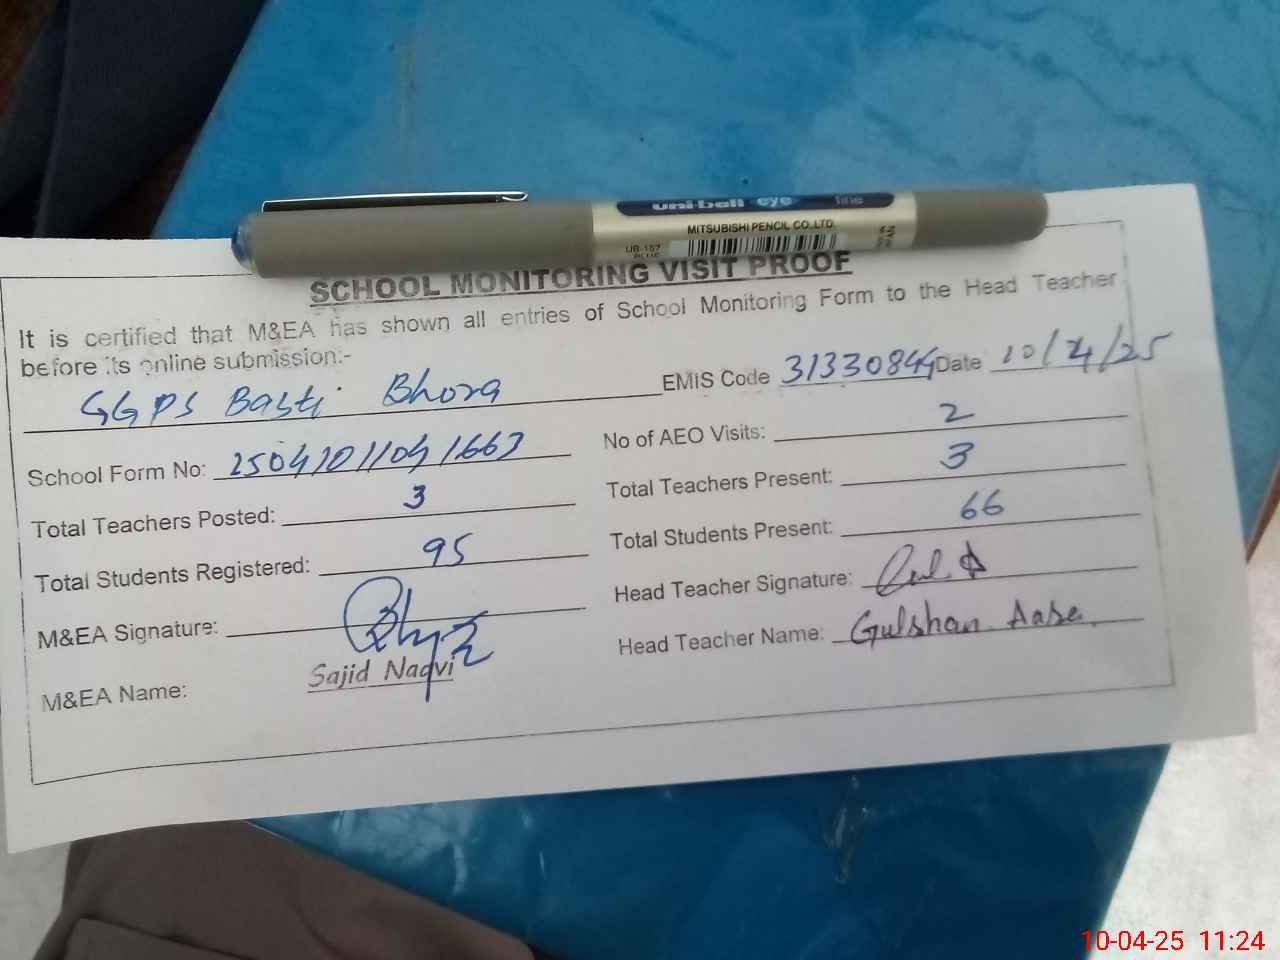 uni-ball eye fine
MITSUBISHI PENCIL CO.,LTD
UB-157
SCHOOL MONITORING VISIT PROOF
It is certified that M&EA has shown all entries of School Monitoring Form to the Head Teacher
before its online submission:-
GGPS Basti Bhora EMIS Code 31330844 Date 10/4/25
School Form No: 25041011041663 No of AEO Visits: 2
Total Teachers Posted: 3 Total Teachers Present: 3
Total Students Registered: 95 Total Students Present: 66
M&EA Signature: Head Teacher Signature:
M&EA Name: Sajid Naqvi Head Teacher Name: Gulshan
10-04-25 11:24